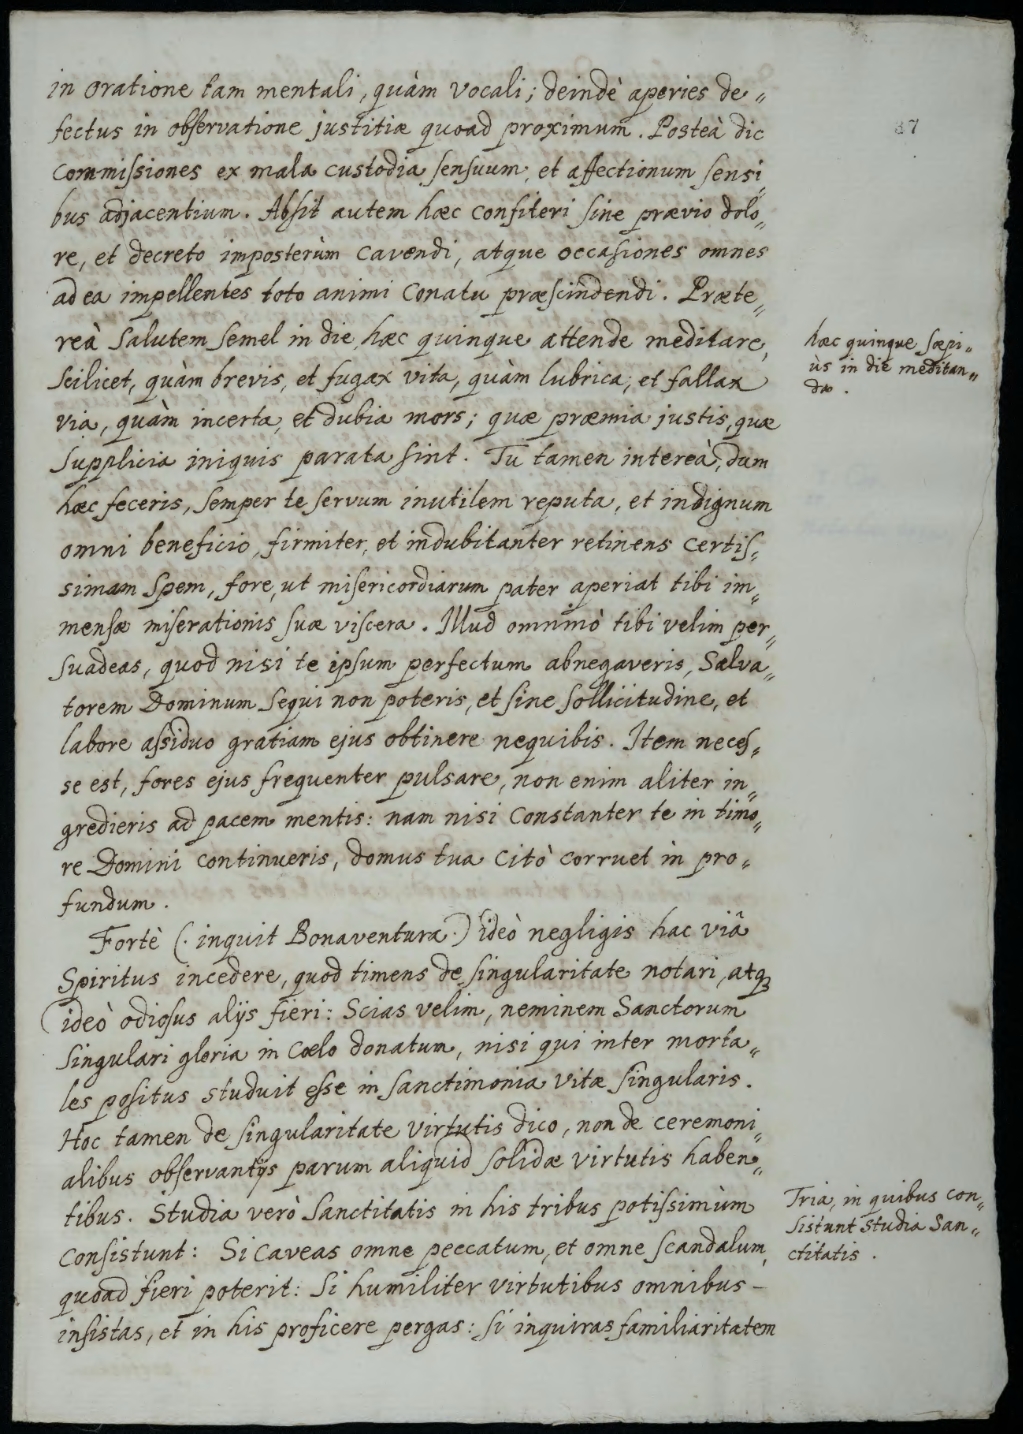 in oratione tam mentali, quàm vocali; deindè aperies de„
fectus in observatione justitiæ quoad proximum. Posteà dic
commissiones ex mala custodia sensuum, et affectionum sensi„
bus adjacentium. Absit autem hæc confiteri sine prævio dolo„
re, et decreto imposterùm cavendi, atque occasiones omnes
ad ea impellentes toto animi conatu præscindendi. Præte„
reà saltem semel in die hæc quinque attende meditare,
scilicet, quàm brevis, et fugax vita, quàm lubrica, et fallax
via, quàm incerta, et dubia mors; quæ præmia justis, quæ
supplicia iniquis parata sint. Tu tamen intereà, dum
hæc feceris, semper te servum inutilem reputa, et indignum
omni beneficio firmiter, et indubitanter retinens certis„
simam spem, fore, ut misericordiarum pater aperiat tibi im„
mensæ miserationis suæ viscera. Illud omninò tibi velim per„
suadeas, quod nisi te ipsum perfectum abnegaveris, Salva„
torem Dominum sequi non poteris, et sine sollicitudine, et
labore assiduo gratiam ejus obtinere nequibis. Item neces„
se est, fores ejus frequenter pulsare, non enim aliter in„
gredieris ad pacem mentis: nam nisi constanter te in timo„
re Domini continueris, domus tua citò corruet in pro„
fundum.
Fortè (· inquit Bonaventura ·) ideò negligis hac viâ
Spiritus incedere, quod timens de singularitate notari, atq3
(ideò odiosus alijs fieri: Scias velim, neminem Sanctorum
singulari gloria in Cœlo donatum, nisi qui inter morta„
les positus studuit esse in sanctimonia vitæ singularis.
Hoc tamen de singularitate virtutis dico, non de ceremoni„
alibus observantijs parum aliquid solidæ virtutis haben„
tibus. Studia verò Sanctitatis in his tribus potissimùm
consistunt: Si caveas omne peccatum, et omne scandalum,
quoad fieri poterit: Si humiliter virtutibus omnibus –
insistas, et in his proficere pergas: si inquiras familiaritatem
87
hæc quinque sæpi„
ùs in die meditan„
da.
Tria, in quibus con„
sistunt studia San„
ctitatis.